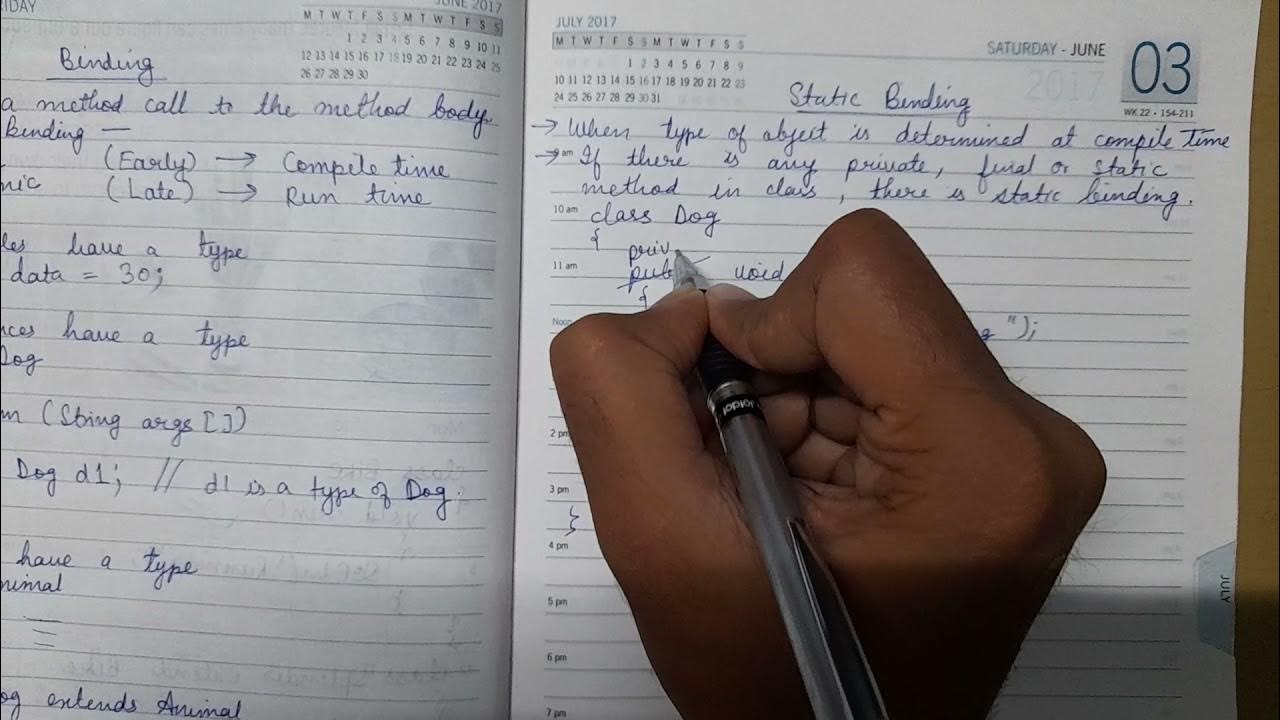 JUNE 2017
M T W T F S S M T W T F S S
1 2 3 4 5 6 7 8 9 10 11
12 13 14 15 16 17 18 19 20 21 22 23 24 25
26 27 28 29 30
Binding
a method call to the method body.
Binding —
(Early) → Compile time
nic (Late) → Run time
les have a type
data = 30;
nces have a type
Dog
n (String args [])
Dog d1; // d1 is a type of Dog.
have a type
nimal
og extends Animal
JULY 2017
M T W T F S S M T W T F S S
1 2 3 4 5 6 7 8 9
10 11 12 13 14 15 16 17 18 19 20 21 22 23
24 25 26 27 28 29 30 31
SATURDAY - JUNE 03
2017
WK 22 • 154-211
Static Binding
→ When type of object is determined at compile time
→ 9 am If there is any private, final or static
method in class, there is static binding.
10 am class Dog
{
priv
11 am void
{
Noon g");
2 pm
3 pm
}
4 pm
5 pm
6 pm
7 pm
JULY